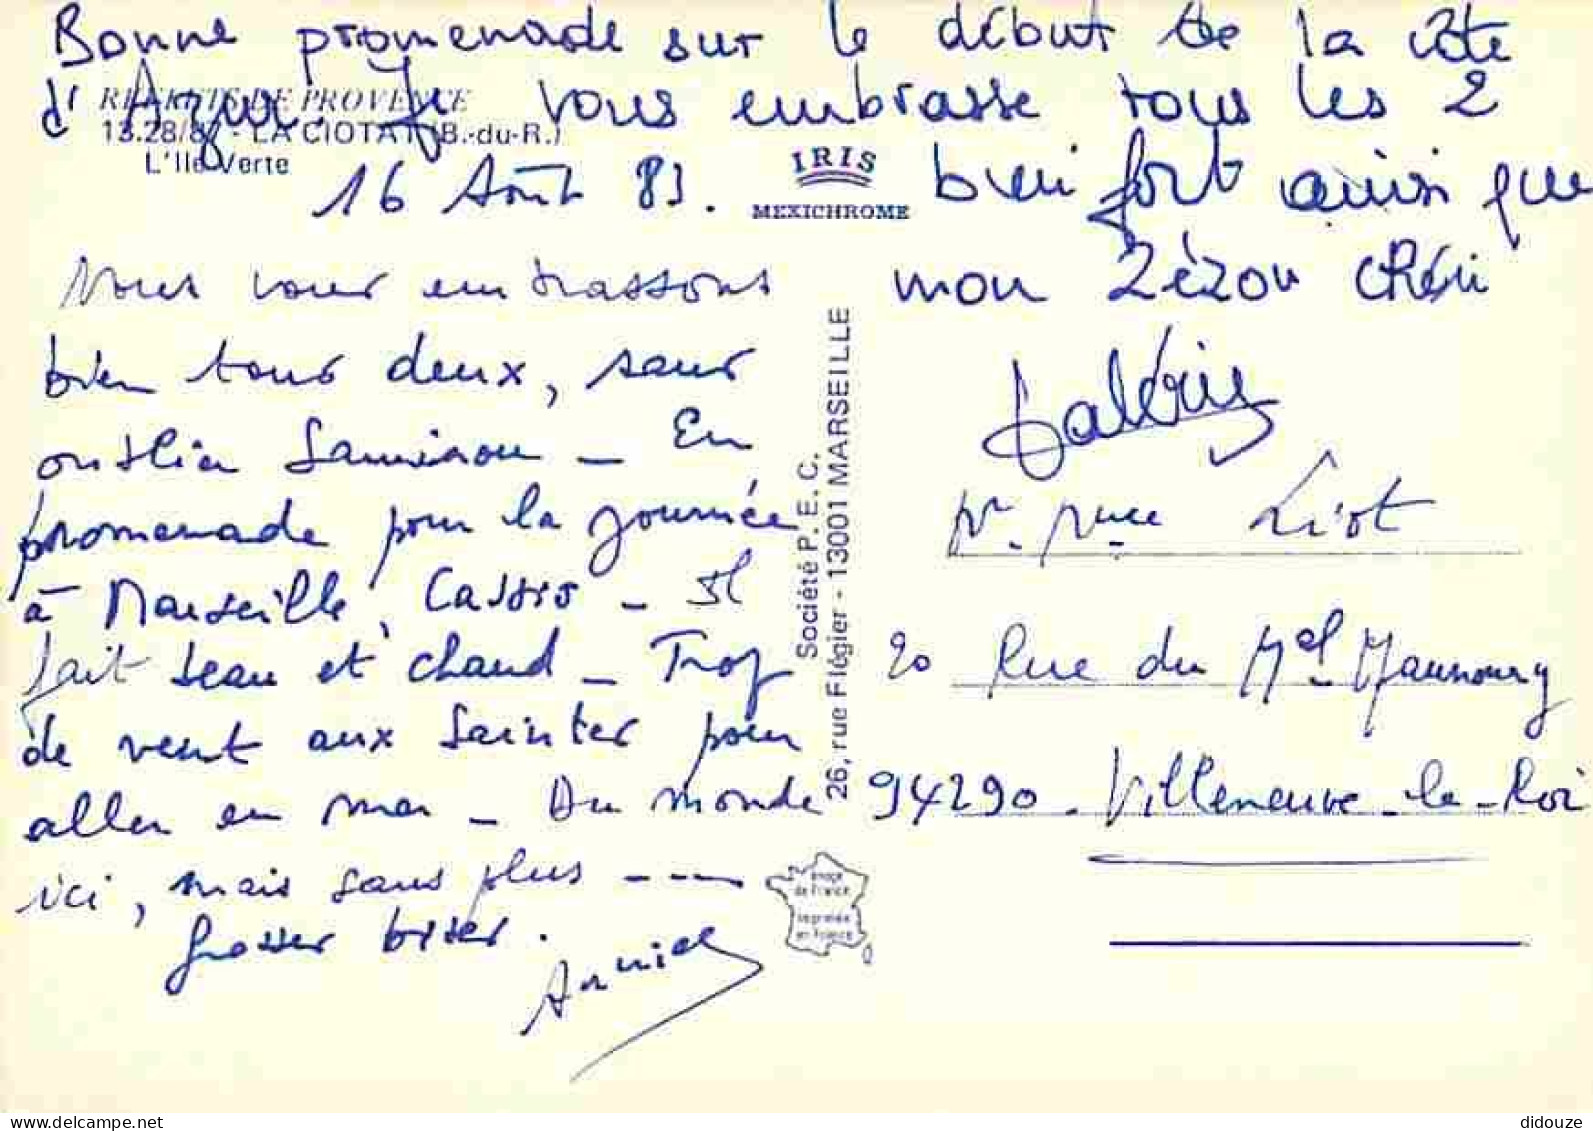 Bonne promenade sur le début de la côte
d'Azur. Je vous embrasse tous les 2
bien fort ainsi que
mon Zézou chéri
Valérie
REFLETS DE PROVENCE
13.28/87 - LA CIOTAT (B.-du-R.)
L'Ile Verte
IRIS
MEXICHROME
16 Août 83.
Nous vous embrassons
bien tous deux, sans
oublier Saminou - En
promenade pour la journée
à Marseille, Cassis - Il
fait beau et chaud - Trop
de vent aux Saintes pour
aller en mer - Du monde
ici, mais sans plus ---
Grosses bises.
Annick
Société P.E.C.
26, rue Flégier - 13001 MARSEILLE
image
de France
imprimée
en France
Mr. Mme Liot
20 Rue du Mal Maunoury
94290 - Villeneuve-le-Roi
didouze